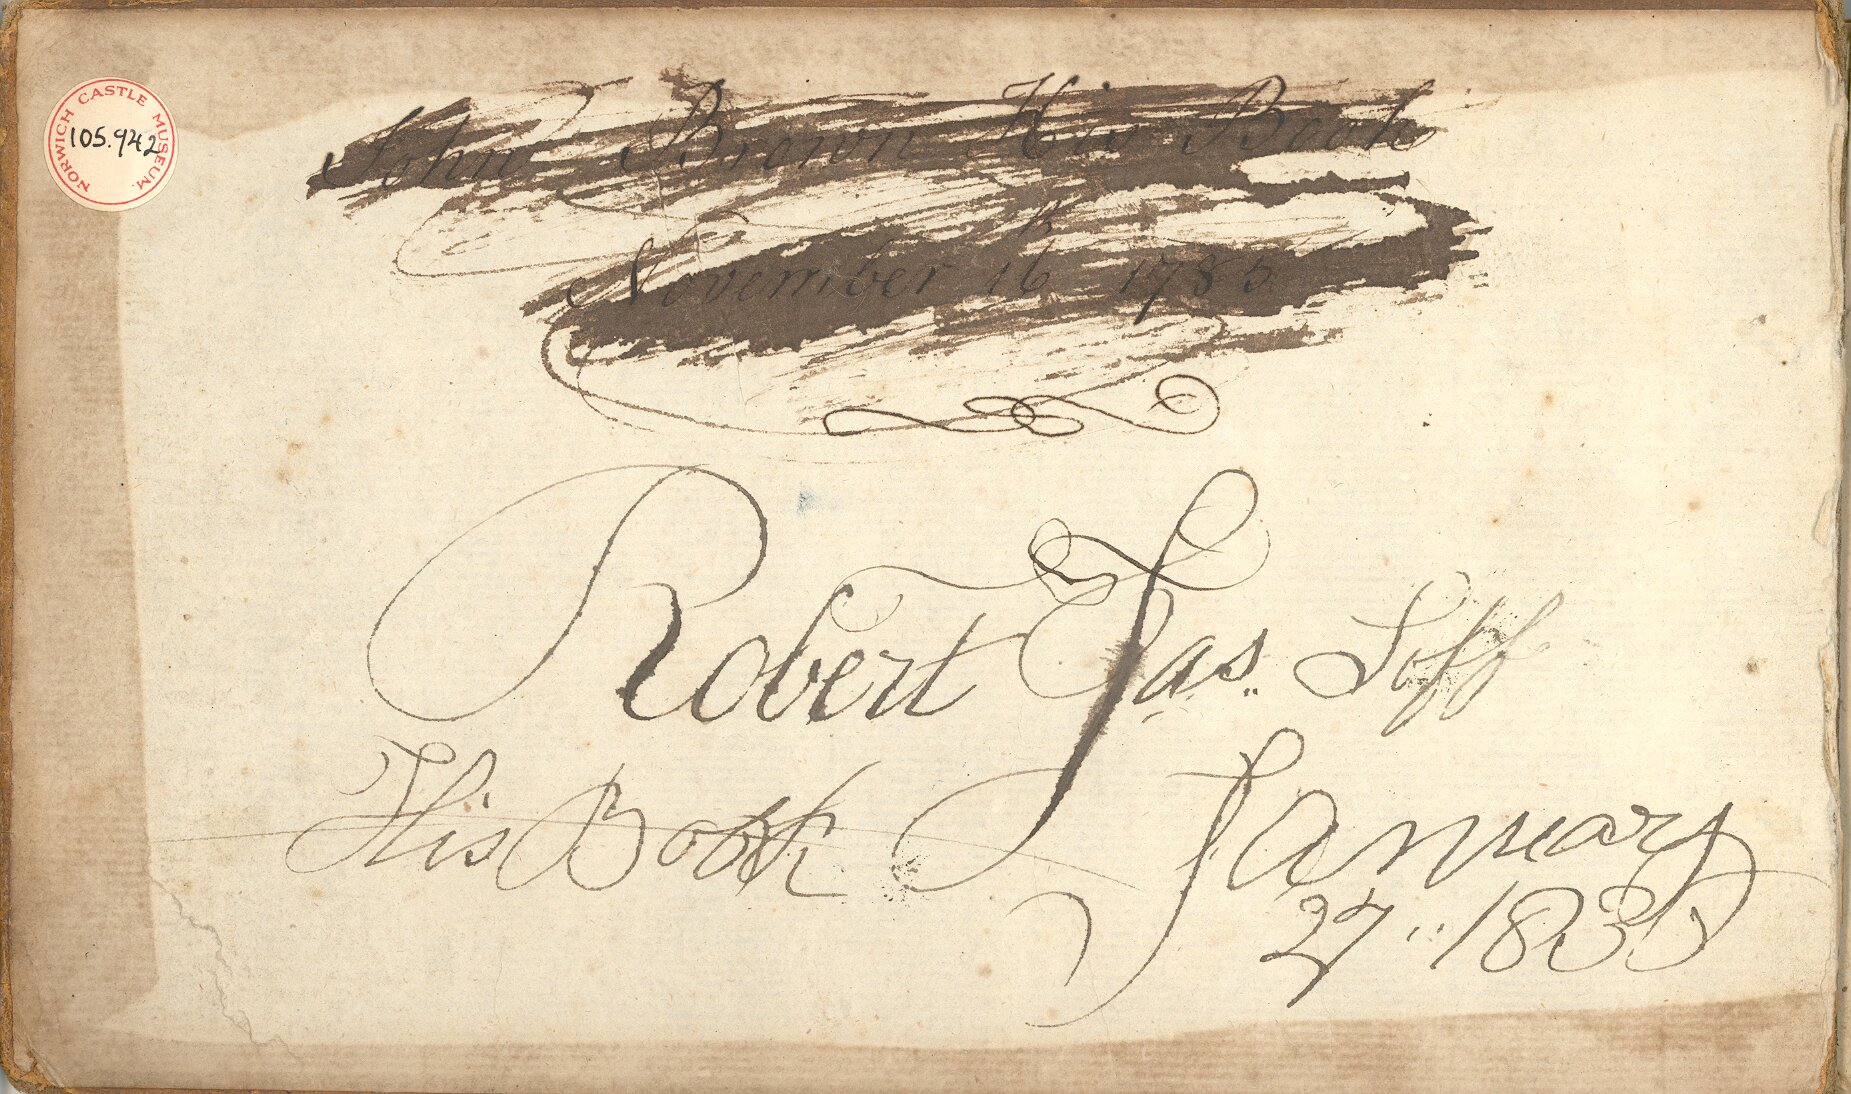 NORWICH CASTLE MUSEUM
105.942
John Brown His Book
November 16th 1785
Robert Jas.. Goff
His Book January
27 .. 183